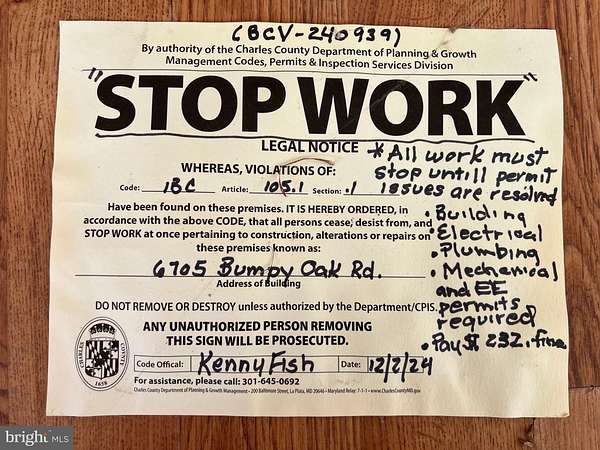 (BCV-240939)
By authority of the Charles County Department of Planning & Growth
Management Codes, Permits & Inspection Services Division
"STOP WORK"
LEGAL NOTICE
WHEREAS, VIOLATIONS OF:
Code: IBC Article: 105.1 Section: .1
Have been found on these premises. IT IS HEREBY ORDERED, in
accordance with the above CODE, that all persons cease, desist from, and
STOP WORK at once pertaining to construction, alterations or repairs on
these premises known as:
6705 Bumpy Oak Rd.
Address of Building
DO NOT REMOVE OR DESTROY unless authorized by the Department/CPIS.
ANY UNAUTHORIZED PERSON REMOVING
THIS SIGN WILL BE PROSECUTED.
Code Offical: Kenny Fish Date: 12/2/24
For assistance, please call: 301-645-0692
Charles County Department of Planning & Growth Management • 200 Baltimore Street, La Plata, MD 20646 • Maryland Relay: 7-1-1 • www.CharlesCountyMD.gov
* All work must
stop untill permit
issues are resolved
• Building
• Electrical
• Plumbing
• Mechanical
and EE
permits
required
• Pay $ 232. fine
CHARLES COUNTY
1658
bright MLS